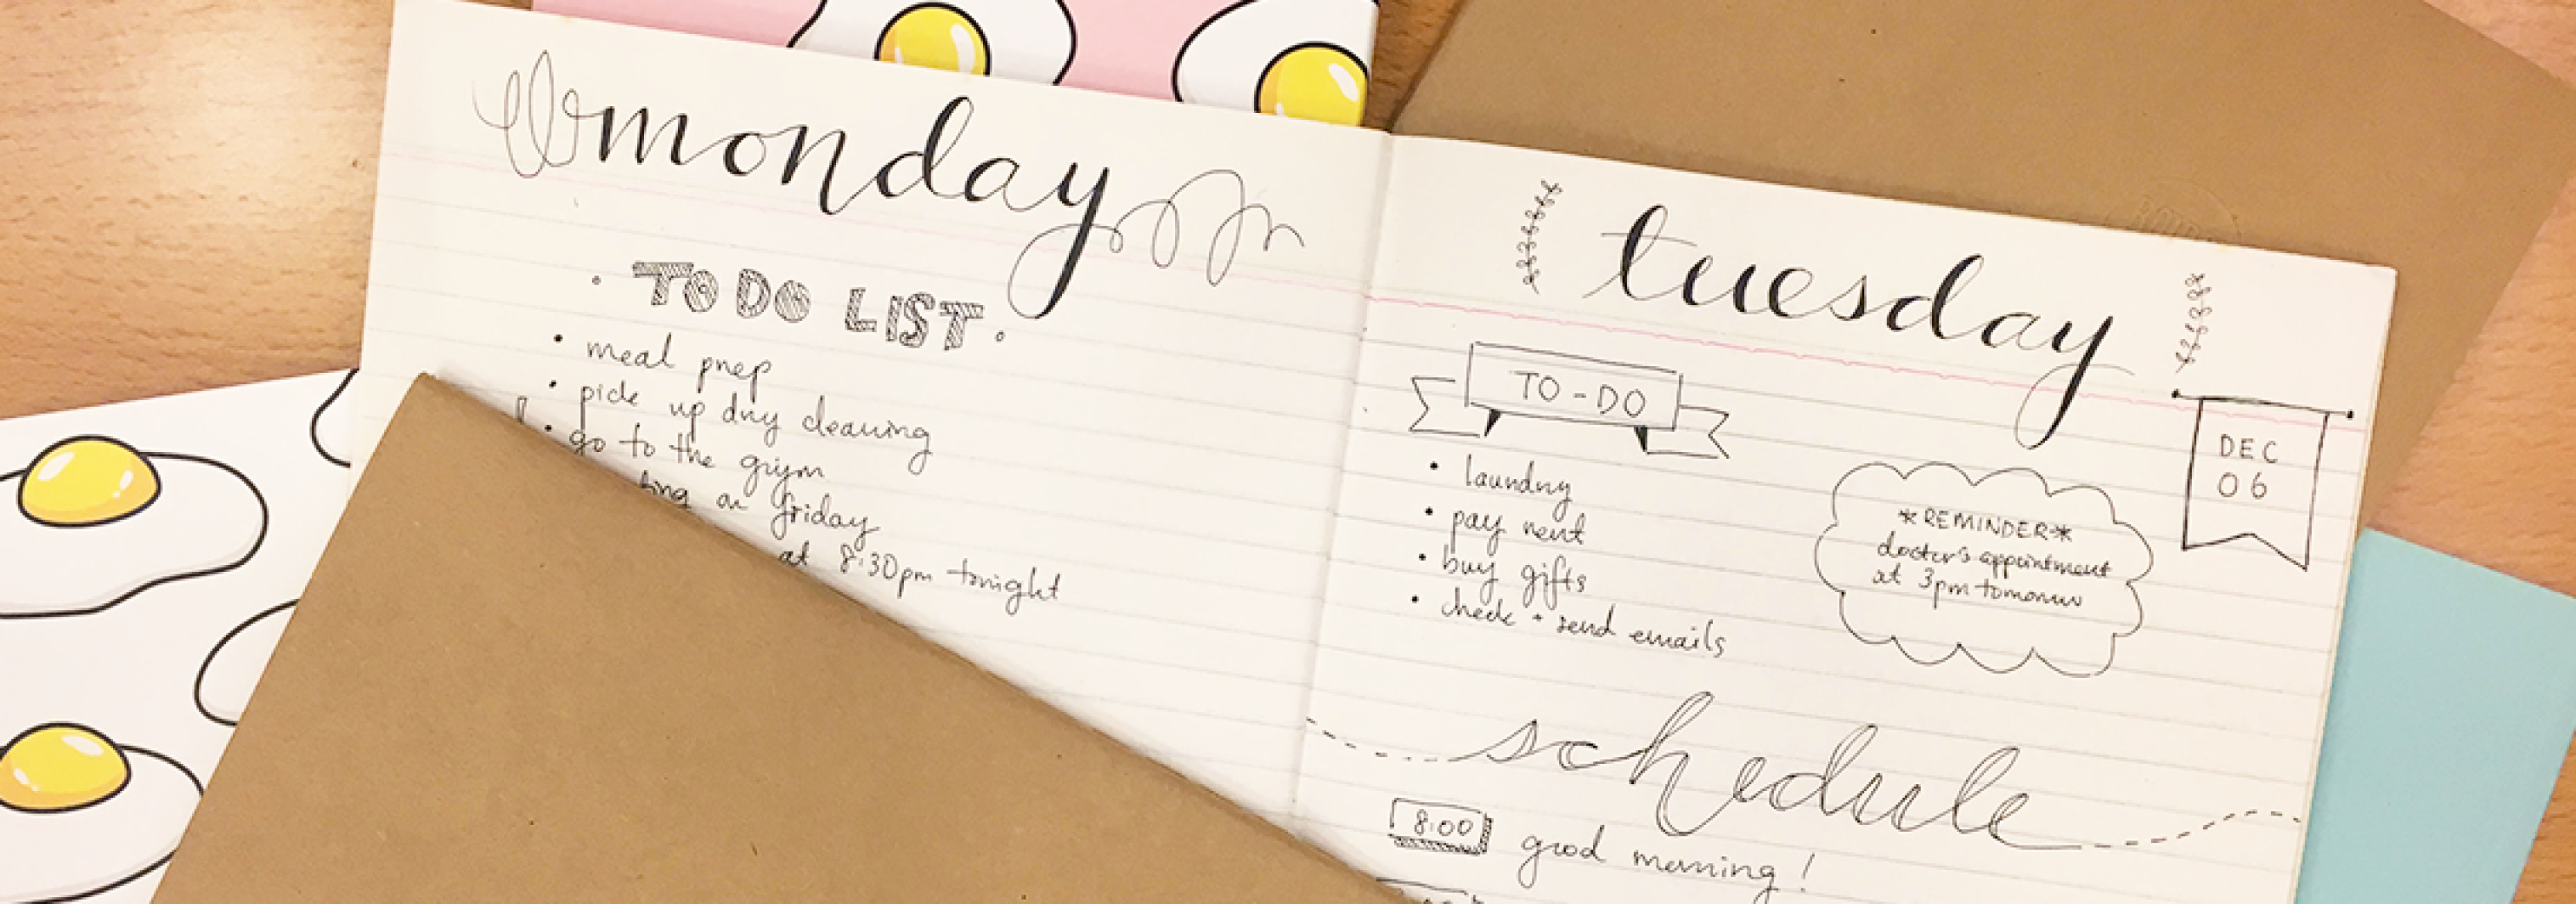 monday
TO DO LIST
• meal prep
• pick up dry cleaning
• go to the gym
on friday
at 8:30pm tonight
tuesday
TO-DO
• laundry
• pay rent
• buy gifts
• check + send emails
DEC
06
*REMINDER*
doctor's appointment
at 3pm tomorrow
schedule
8:00 good morning!